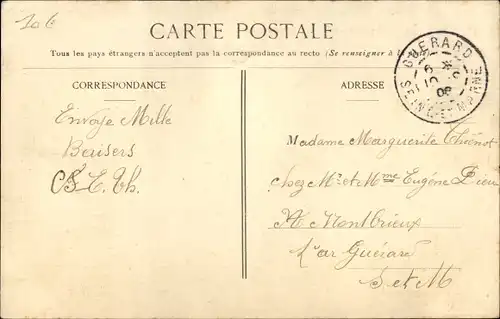 CARTE POSTALE
Tous les pays étrangers n'acceptent pas la correspondance au recto (Se renseigner à
CORRESPONDANCE
ADRESSE
GUERARD
SEINE-ET-MARNE
Envoie Mille
Baisers
Madame Marguerite
chez Mr et Mme Eugène Dieu
A Montbrieux
Par Guérard
S et M